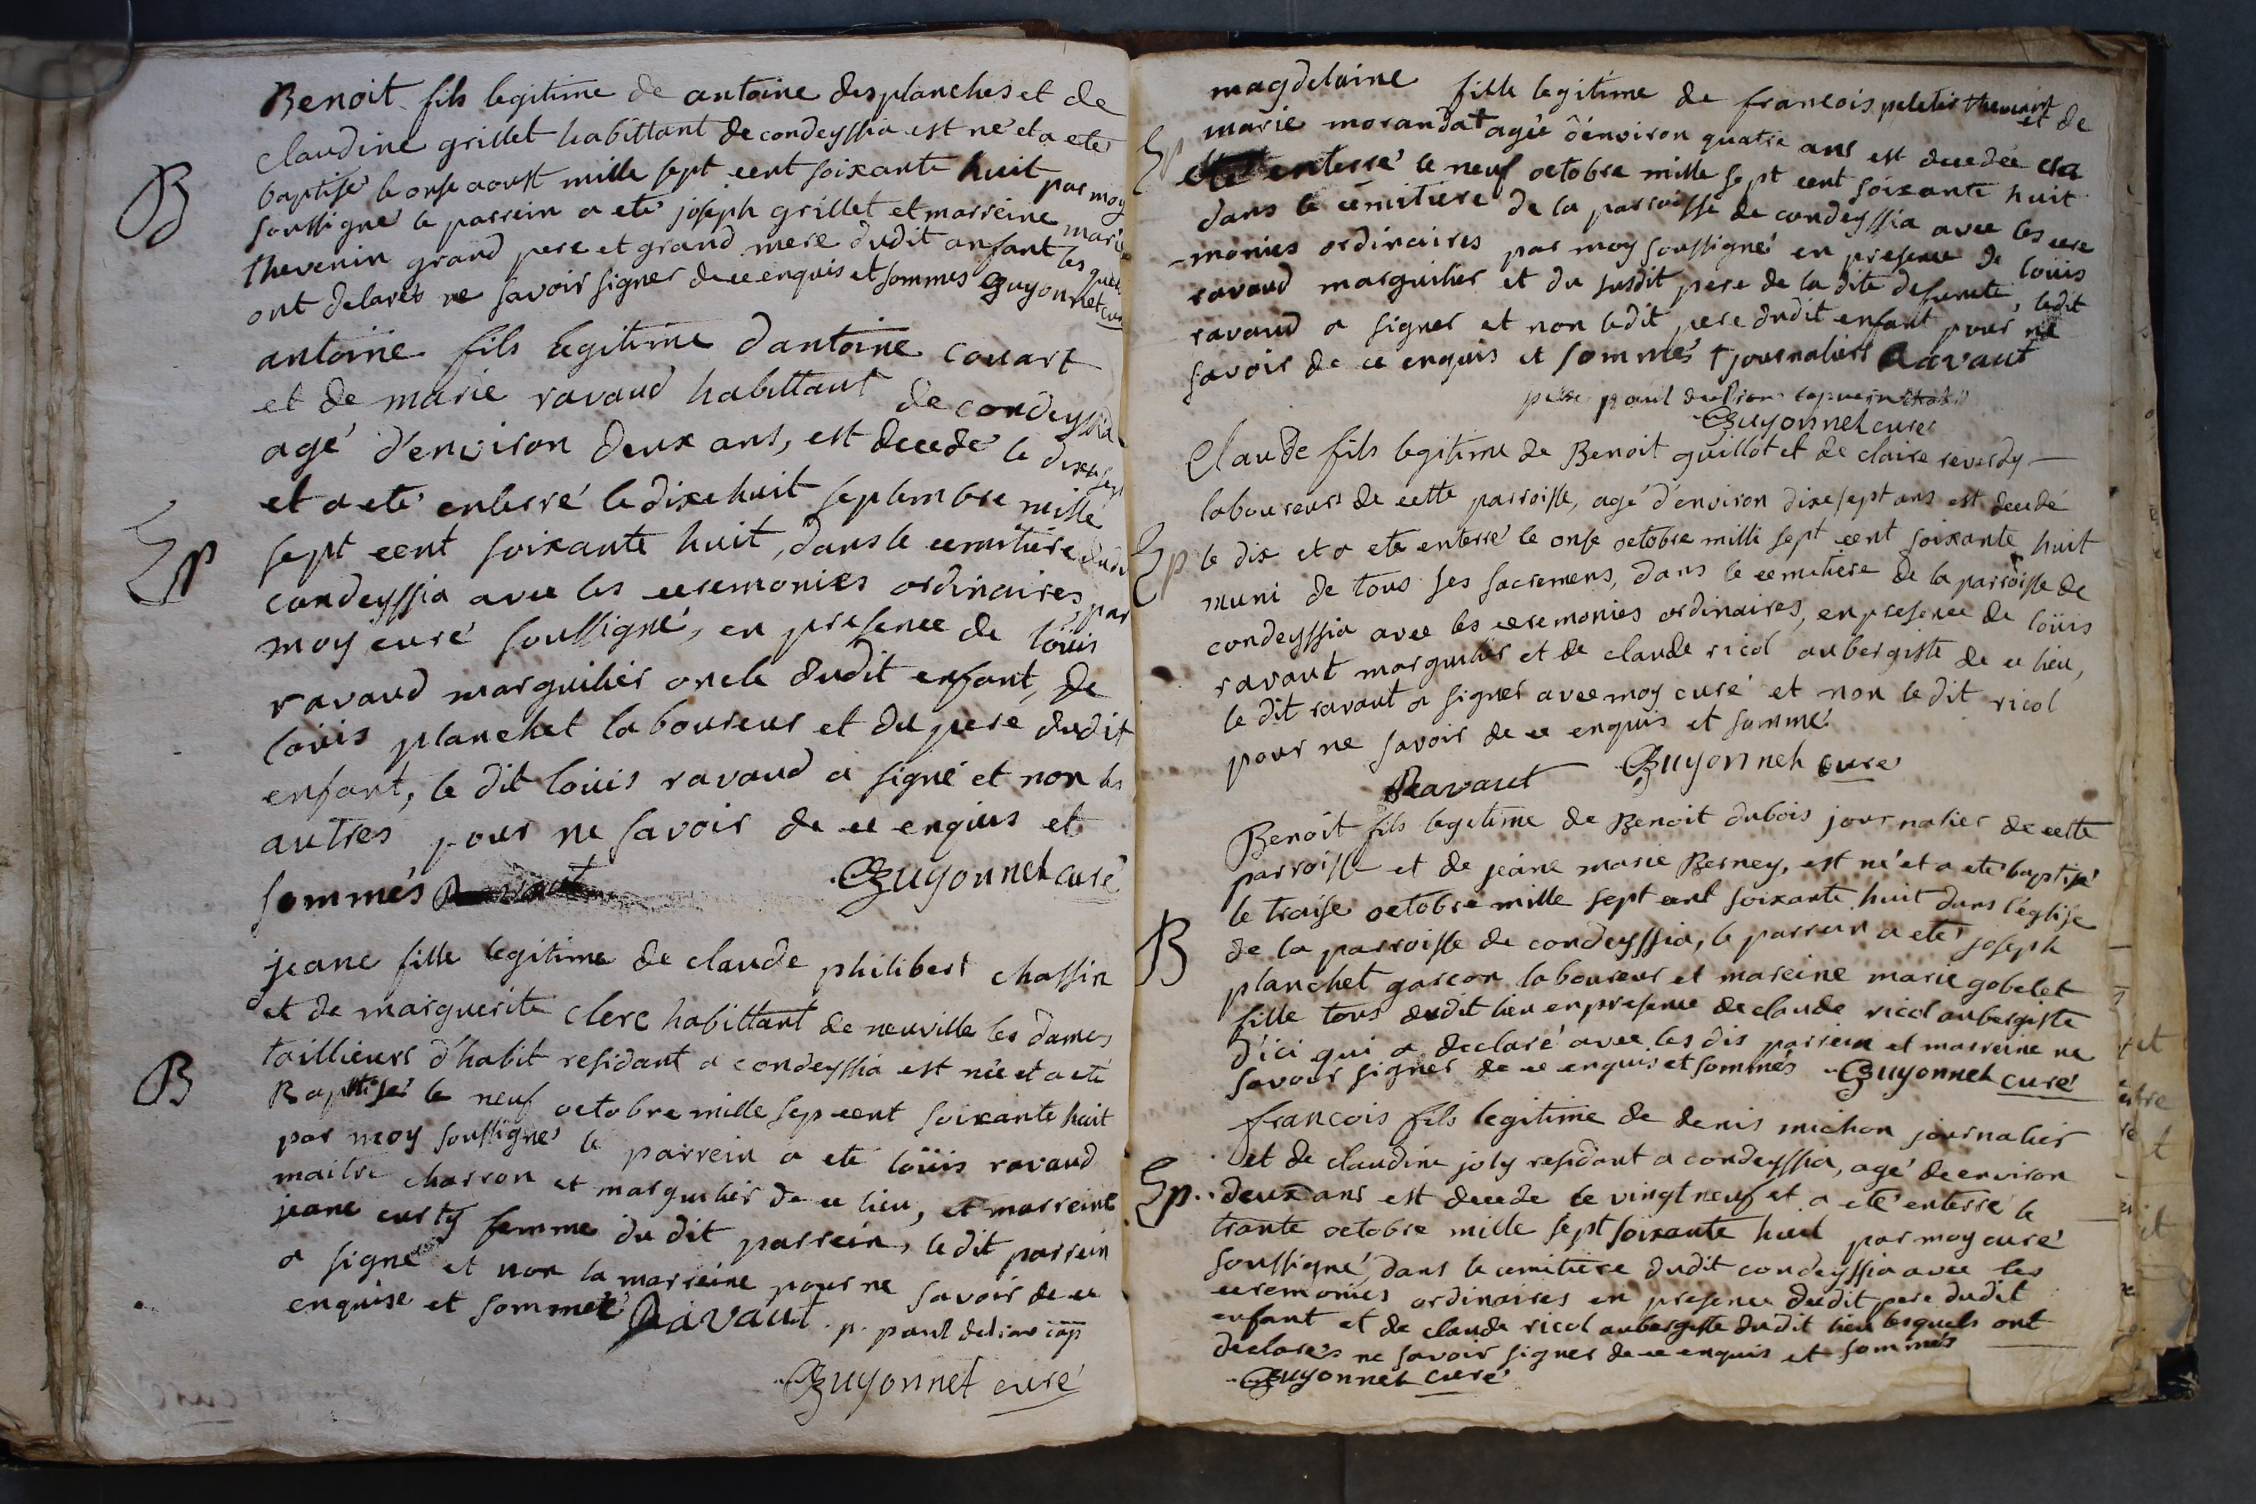 Benoit fils legitime de antoine desplanches et de
claudine grillet habittant de condeyssia est né et a eté
B
baptisé le onse aoust mille sept cent soixante huit par moy
soussigné le parrein a eté joseph grillet et marreine marie
thevenin grand pere et grand mere dudit anfant les quels
ont delarés ne savoir signer de ce enquis et sommes Guyonnet curé
antoine fils legitime d'antoine couart
et de marie ravaud habittant de condeyssia
agé d'environ deux ans, est decedé le dixesept
et a eté enterré le dixehuit septembre mille
Ep
sept cent soixante huit, dans le cemitiere dudit
condeyssia avec les ceremonies ordinaires par
moy curé soussigné, en presence de loüis
ravaud marguilier oncle dudit enfant, de
loüis planchet laboureur et du pere dudit
enfant, le dit loüis ravaud a signé et non les
autres pour ne savoir de ce enquis et
sommés Ravaut Guyonnet curé
jeane fille legitime de claude philibert chassin
et de marguerite clerc habittant de neuville les dames
taillieurs d'habit residant a condeyssia est née et a eté
B
Baptisée le neuf octobre mille sep cent soixante huit
par moy soussigné le parrein a eté loüis ravaud
maitre charron et marguilier de ce lieu, et marreine
jeane curty femme du dit parrein, le dit parrein
a signé et non la marreine pour ne savoir de ce
enquise et sommée Ravaut . p. paul delion cap
Guyonnet curé
magdelaine fille legitime de francois peletier thevenart et de
marie morandat agée d'environ quatre ans est decedée et a
Ep
eté enterré le neuf octobre mille sept cent soixante huit
dans le cemitiere de la parroisse de condeyssia avec les cere
-monies ordinaires par moy soussigné en presence de loüis
ravaud marguilier et du susdit pere de la dite defunte, ledit
ravaud a signer et non ledit pere dudit enfant pour ne
savoir de ce enquis et sommés + journaliers Ravaut
paul
Guyonnet curé
Claude fils legitime de Benoit guillot et de claire reverdy
laboureurs de cette parroisse, agé d'environ dixesept ans est decedé
Ep
le dix et a eté enterré le onse octobre mille sept cent soixante huit
muni de tous ses sacremens, dans le cemitiere de la parroisse de
condeyssia avec les ceremonies ordinaires, en presence de loüis
ravaut marguilier et de claude ricol aubergiste de ce lieu,
le dit ravaut a signer avec moy curé et non le dit ricol
pour ne savoir de ce enquis et sommé
Ravaut Guyonnet curé
Benoit fils legetime de Benoit dubois journalier de cette
parroisse et de jeane marie Berney, est né et a eté baptisé
le traise octobre mille sept cent soixante huit dans l'église
B
de la parroisse de condeyssia, le parrein a eté joseph
planchet garcon laboureur et mareine marie gobelet
fille tous dudit lieu en presence de claude ricol aubergiste
d'ici qui a declaré avec les dis parrein et marreine ne
savoir signer de ce enquis et sommés Guyonnet curé
francois fils legitime de denis michon journalier
et de claudine joly residant a condeyssia, agé de environ
Ep.
deux ans est decede le vingt neuf et a eté enterré le
trante octobre mille sept soixante huit par moy curé
soussigné, dans le cemitiere dudit condeyssia avec les
ceremonies ordinaires en presence dudit pere dudit
enfant et de claude ricol aubergiste dudit lieu lesquels ont
declarés ne savoir signer de ce enquis et sommés
Guyonnet curé